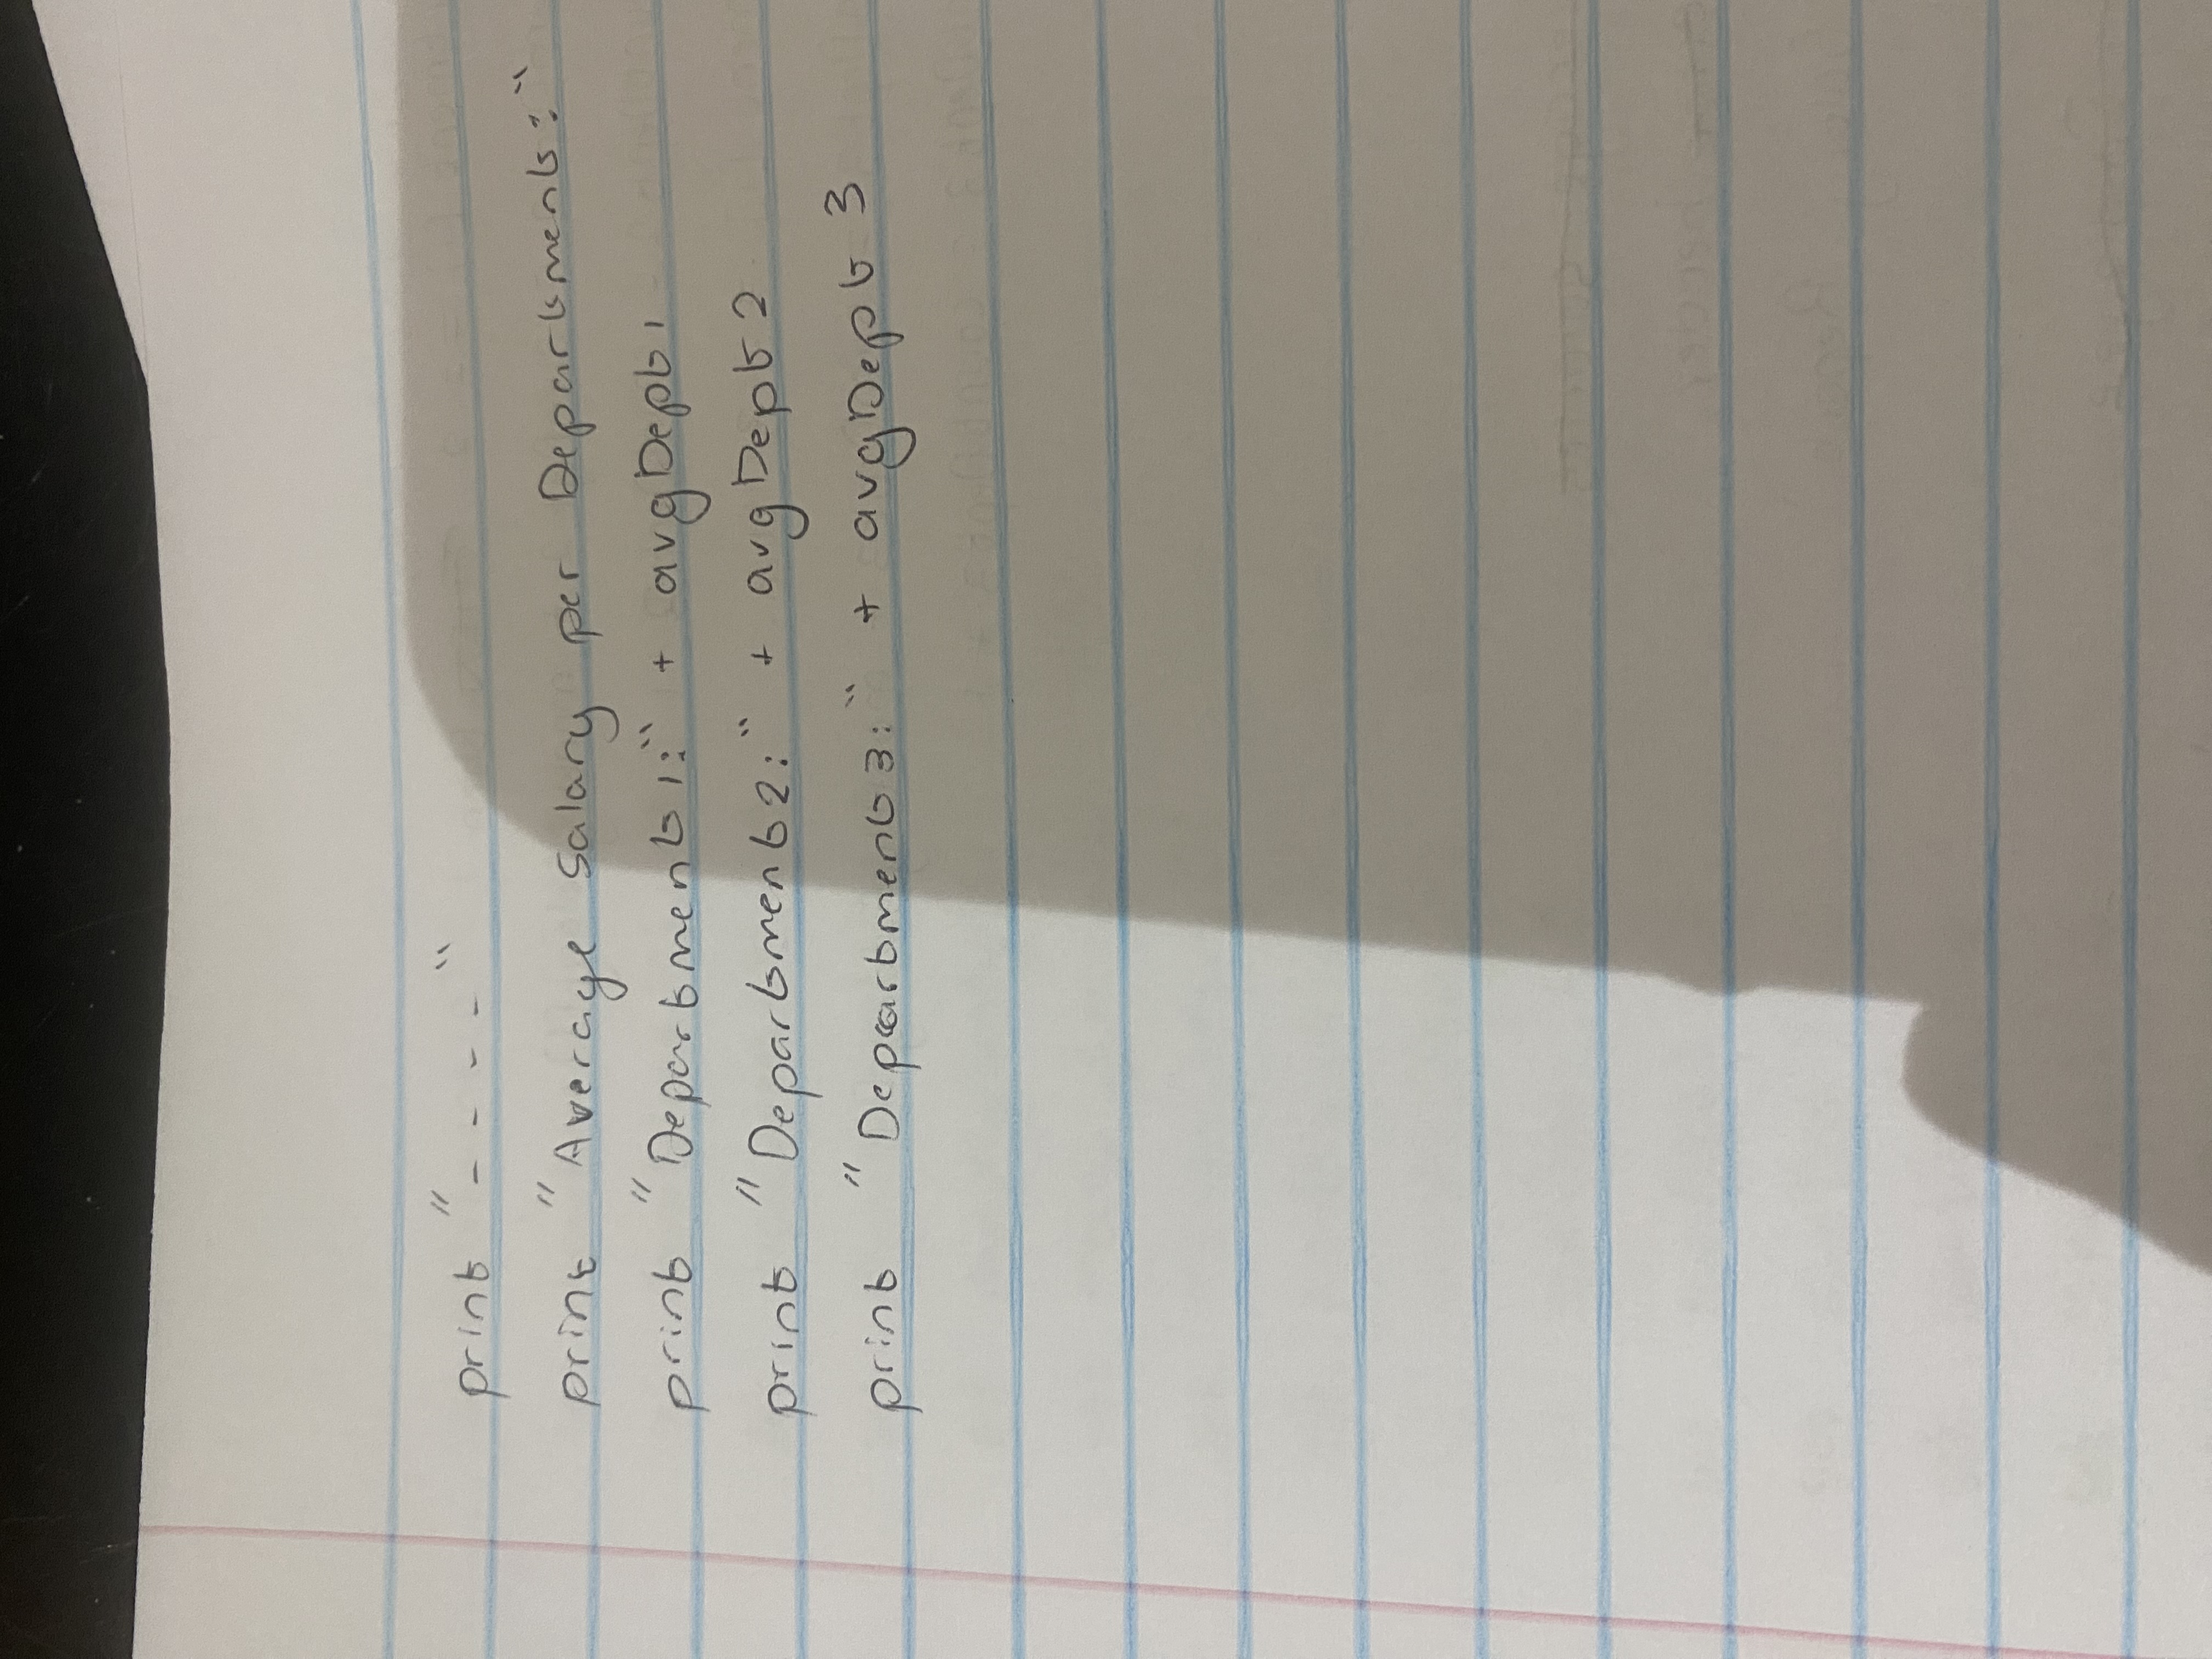 print "----"
print "Average Salary per Department:"
print "Department 1:" + avgDept1
print "Department 2:" + avgDept 2
print "Department 3:" + avgDept 3